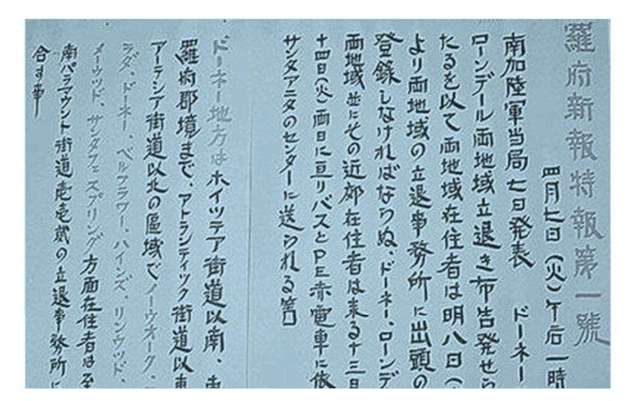 羅府新報特報第一號
四月七日(火)午后一時
南加陸軍当局七日発表 ドーネー
ローンデール両地域立退き布告発せら
たるを以て両地域在住者は明八日(
より両地域の立退事務所に出頭の
登録しなければならぬ、ドーネー、ローンデ
両地域並にその近郊在住者は来る十三日
十四日(火)両日に亘りバスとPE赤電車に依
サンタアニタのセンターに送られる筈
ドーネー地方はホイッテア街道以南、東
羅府郡境まで、アトランティック街道以東
アーテシア街道以北の區域でノーウオーク、
ラダ、ドーネー、ベルフラワー、ハインズ、リンウッド、
メーウッド、サンタフェスプリング方面在住者は至
南パラマウント街道壱壱貳の立退事務所に
合す事